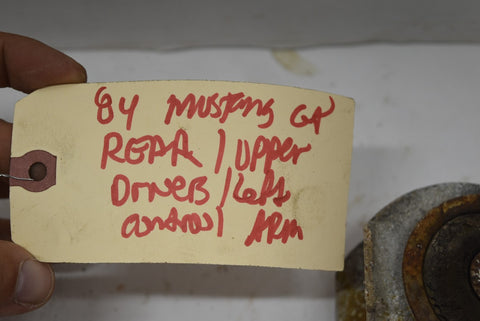 84 MUSTANG GT
REAR / UPPER
DRIVERS / Left
control ARM